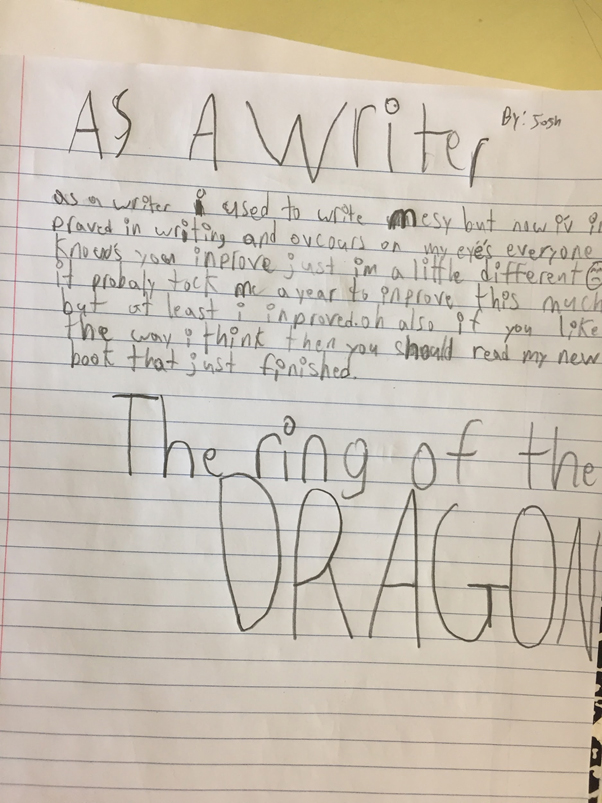 As A Writer
By: Josh
as a writer i used to write mesy but now iv in
praved in writing and ovcours on my eye's everyone
knows you inprove just im a little different
it probaly tock me a year to inprove this much
but at least i inproved.oh also if you like
the way i think then you should read my new
book that just finished.
The ring of the
DRAGON